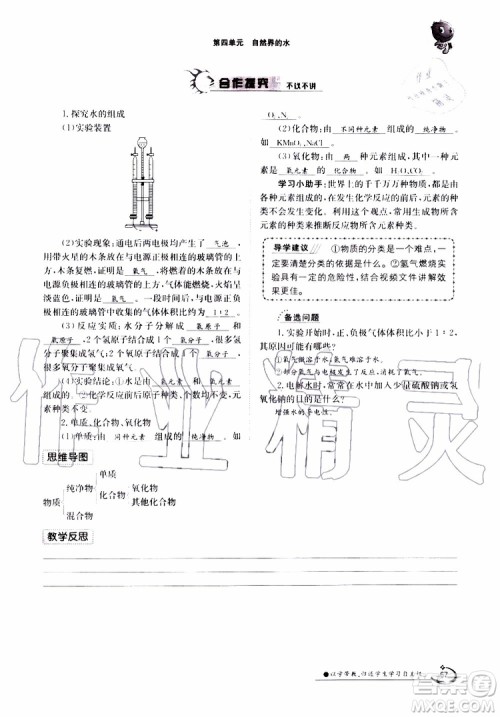 第四单元 自然界的水
合作探究 不议不讲
1. 探究水的组成
(1)实验装置
(2)实验现象:通电后两电极均产生了 气泡 ,
用带火星的木条放在与电源正极相连的玻璃管
木条复燃,是 氧气 ,将燃着的木条放在与电源
负极相连的玻璃管中,气体能燃烧,火焰呈
淡蓝色,是 氢气 。一段时间后,与电源正、负极
相连的玻璃管中收集的气体体积之比为 1:2 。
(3)反应实质:水分子分解成 氢原子 和
氧原子 ,2个氢原子结合成1个氢分子,很多氢
分子聚集成氢气;
(4)实验结论:①水是由
②化学反应前后原子种类不变,元
素种类不变。
2. 单质、化合物、氧化物
(1)单质:由 同种元素 组成的 纯净物 。如
O₂、N₂ 。
(2)化合物:由 不同种元素 组成的 纯净物 。
如 KMnO₄、NaCl 。
(3)氧化物:由 两 种元素组成,其中一种元
素是 氧元素 的 化合物 。如 H₂O、CO₂ 。
学习小助手:世界上的千千万万种物质都是
由元素组成的,化学反应前后,元素的种
类不会发生改变,所以可以根据生成物的元素种
类来推断反应物的元素种类。
导学建议
①物质的分类是一个难点,一
定要讲清楚分类的依据是什么。②氢气燃烧实
验具有一定的危险性,结合视频文件讲解
效果更佳。
备选问题
1. 实验开始时,正、负极气体体积比小于1:2,其
原因可能有哪些?
①氧气微溶于水,氢气难溶于水。
2. 电解水时,常常在水中加入少量硫酸钠或氢
氧化钠的目的是什么?
增强水的导电性。
思维导图
单质
纯净物
氧化物
物质
化合物
其他化合物
混合物
教学反思
以学带教,归还学生学习自主权
67
作业精灵